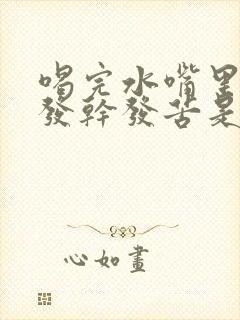 喝完水嘴里
發幹發苦是
心如畫